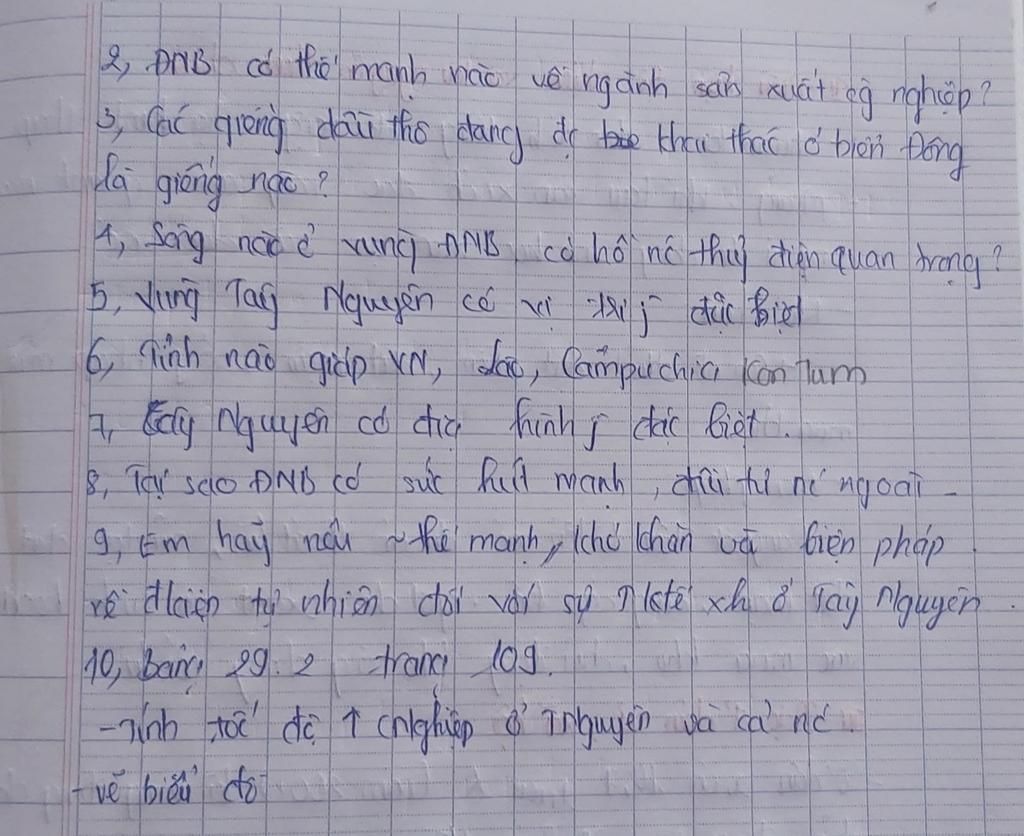 2, ĐNB có thế mạnh nào về ngành sản xuất cg nghiệp?
3, Các giếng dầu thô đang đc khai thác ở biển Đông
là giếng nào?
4, Sông nào ở vùng ĐNB có hồ nc thuỷ điện quan trọng?
5, Vùng Tây Nguyên có vị trí j đặc biệt
6, Tỉnh nào giáp VN, Lào, Campuchia Kon Tum
7, Tây Nguyên có địa hình j đặc biệt.
8, Tại sao ĐNB có sức hút mạnh, đầu tư nc ngoài
9, Em hãy nêu ~ thế mạnh, khó khăn và biện pháp
về đkiện tự nhiên đối với sự ↑ ktế xh ở Tây Nguyên.
10, Bảng 29.2 trang 109.
- Tính tốc độ ↑ cnghiệp ở Tnguyên và cả nc.
- vẽ biểu đồ